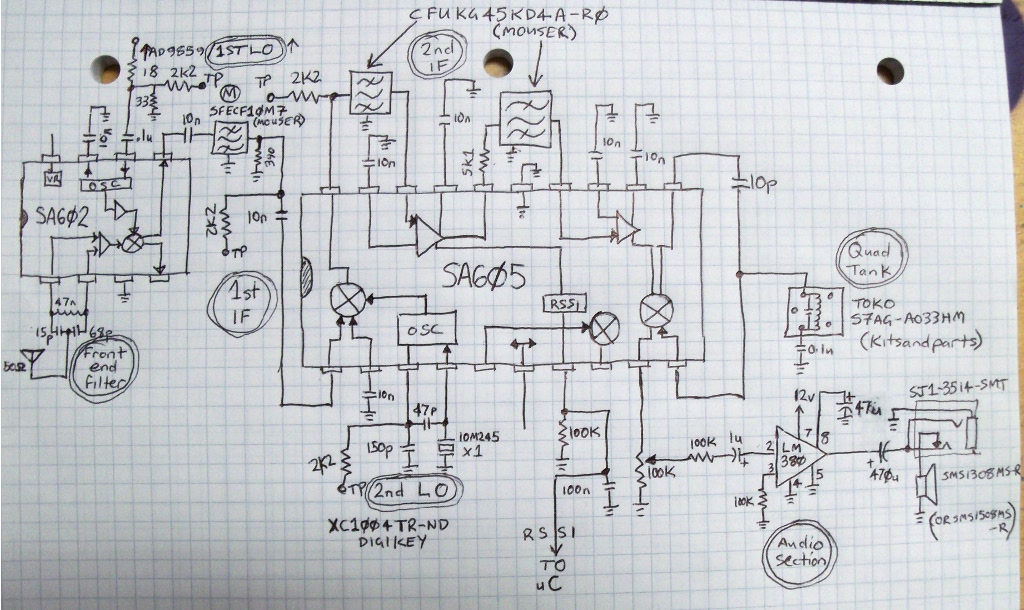 CFUKG45KD4A-RØ
(MOUSER)
AD9859
1ST LO
18
2K2
TP
M
TP
2K2
33
SFECF10M7
(MOUSER)
2nd
IF
10n
.1u
10n
390
10n
10n
5K1
10n
10n
10p
VR
OSC
SA602
2K2
10n
TP
47n
15p
68p
50Ω
Front
end
Filter
1st
IF
SA605
RSSI
OSC
Quad
Tank
TOKO
S7AG-A033HM
(Kitsandparts)
0.1u
10n
47p
150p
10M245
X1
2K2
TP
2nd LO
XC1004TR-ND
DIGIKEY
100K
100n
RSSI
TO
uC
100K
100K
1u
+
12v
7
8
2
LM
380
3
4
5
100K
+
47u
+
470u
SJ1-3514-SMT
SMS1308MS-R
(OR SMS1508MS
-R)
Audio
Section